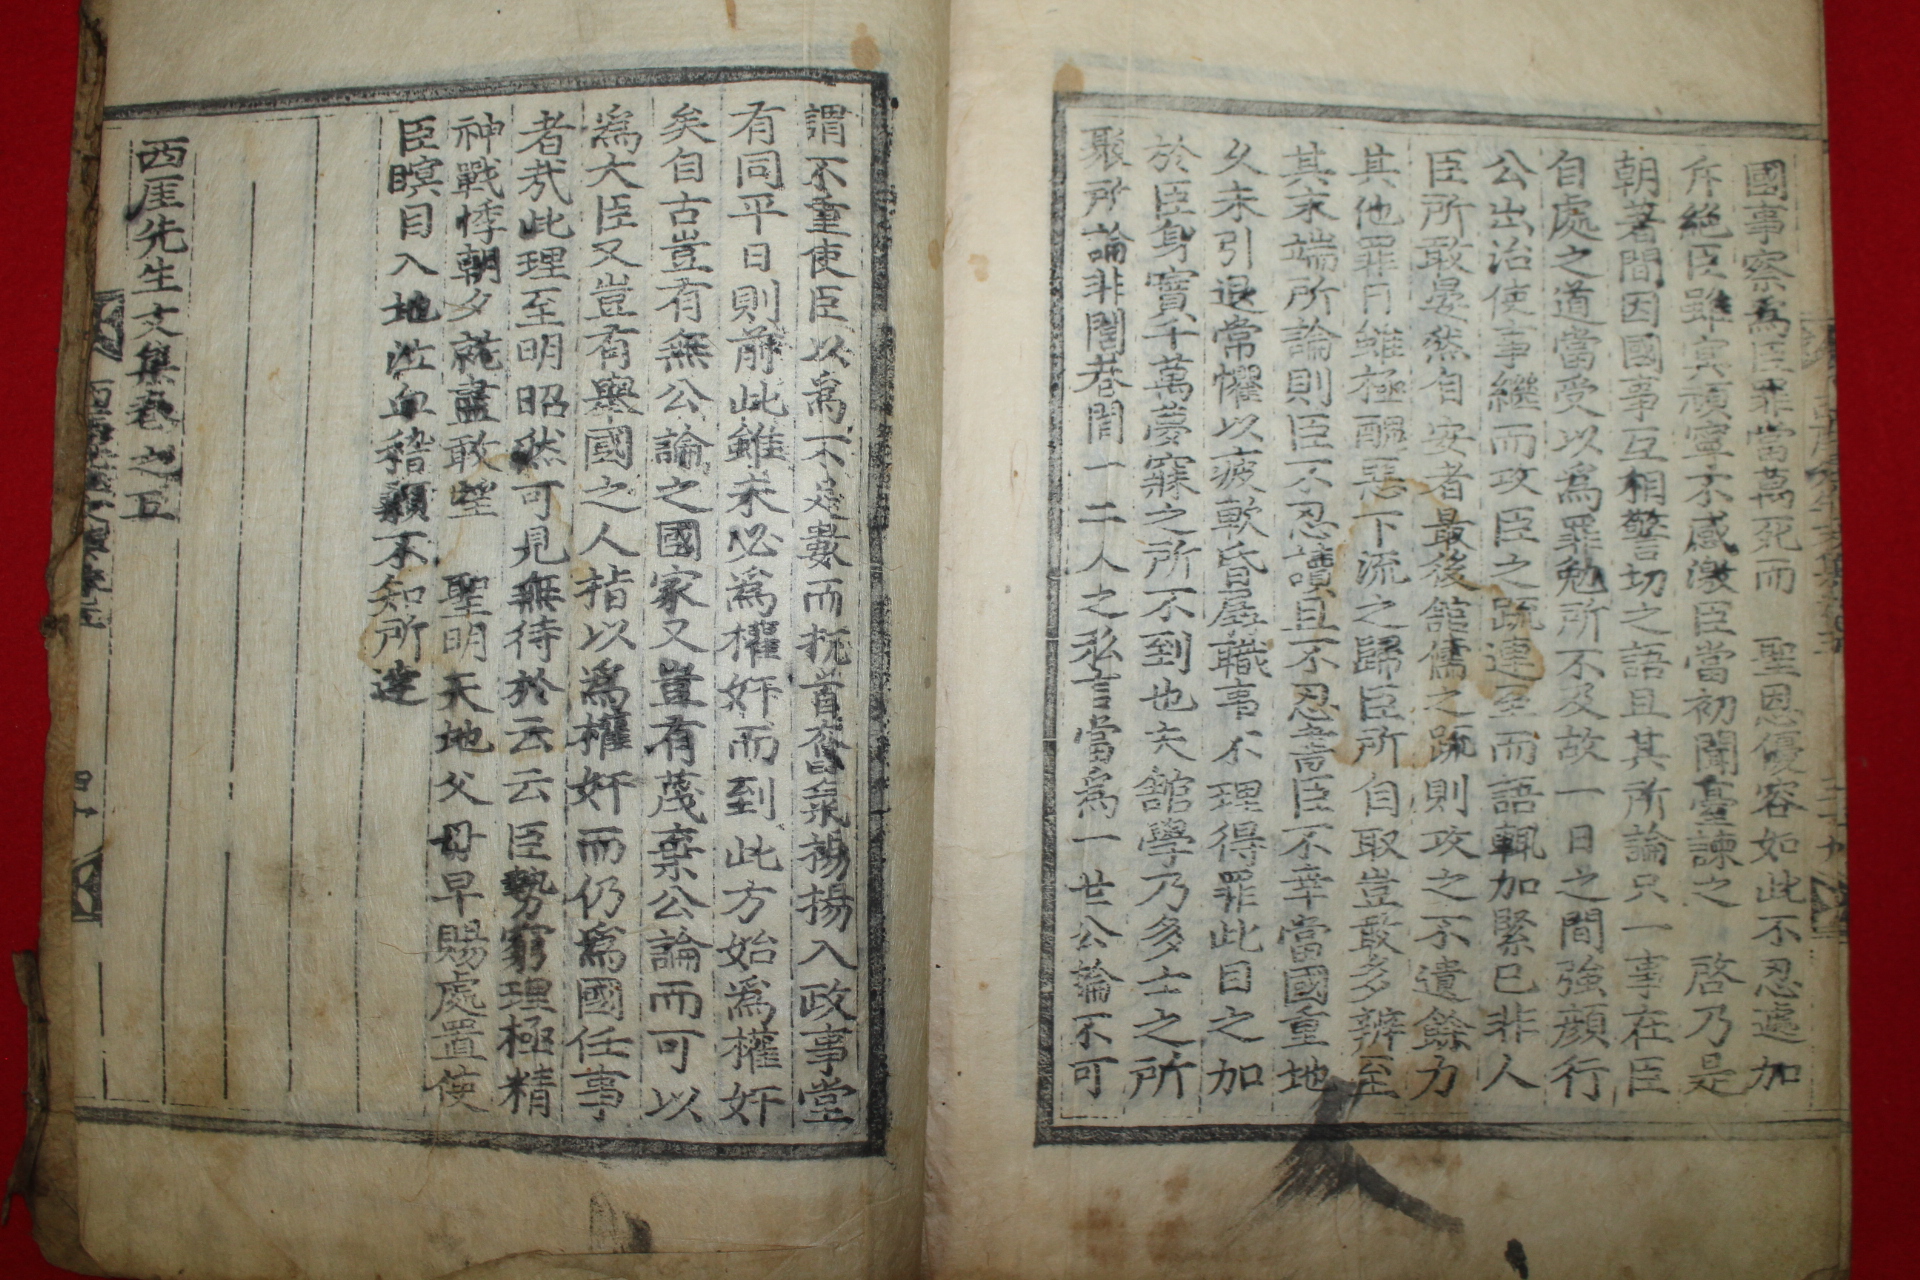 國事察爲臣罪當萬死而 聖恩優容如此不忍遽加
斥絶臣雖冥頑寧不感激臣當初聞臺諫之 啓乃是
朝著間因國事互相警切之語且其所論只一事在臣
自處之道當受以爲罪勉所不及故一日之間強顔行
公出治使事繼而攻臣之疏連至而語輒加緊已非人
臣所敢晏然自安者最後館儒之疏則攻之不遺餘力
其他罪目雖極醜惡下流之歸臣所自取豈敢多辨至
其末端所論則臣不忍讀且不忍言臣不幸當國重地
久未引退常懼以疲軟昏孱職事不理得罪此目之加
於臣身實千萬夢寐之所不到也夫館學乃多士之所
聚所論非閭巷間一二人之私言當爲一世公論不可
謂不重使臣以爲不足數而抗首奮袂揚揚入政事堂
有同平日則前此雖未必爲權奸而到此方始爲權奸
矣自古豈有無公論之國家又豈有蔑棄公論而可以
爲大臣又豈有擧國之人指以爲權奸而仍爲國任事
者哉此理至明昭然可見無待於云云臣勢窮理極精
神戰悸朝夕就盡敢望 聖明天地父母早賜處置使
臣瞑目入地泣血稽顙不知所達
西厓先生文集卷之五